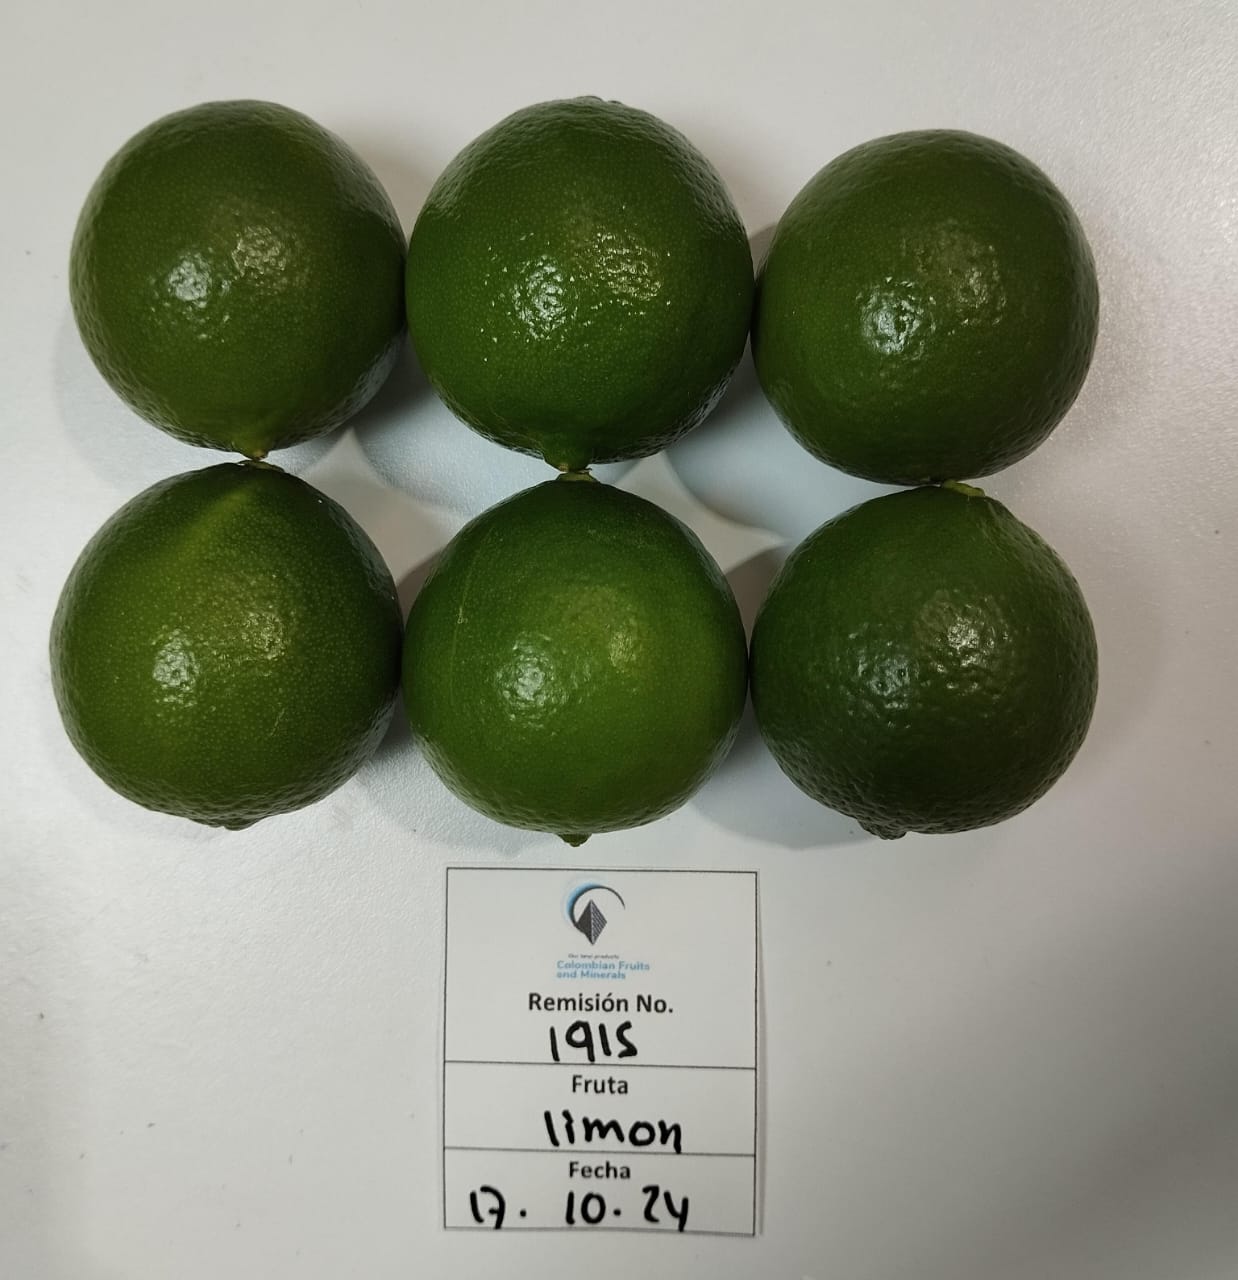 Our best products
Colombian Fruits
and Minerals
Remisión No.
1915
Fruta
limon
Fecha
17. 10. 24